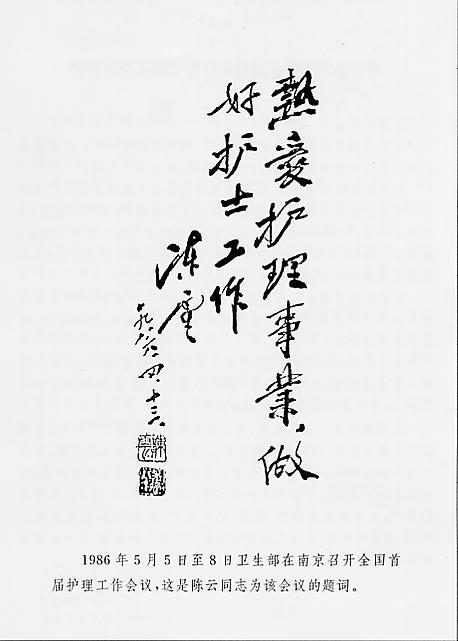 熱愛护理事業，做
好护士工作
陳雲
一九八六.四.十三
1986年5月5日至8日卫生部在南京召开全国首
届护理工作会议，这是陈云同志为该会议的题词。